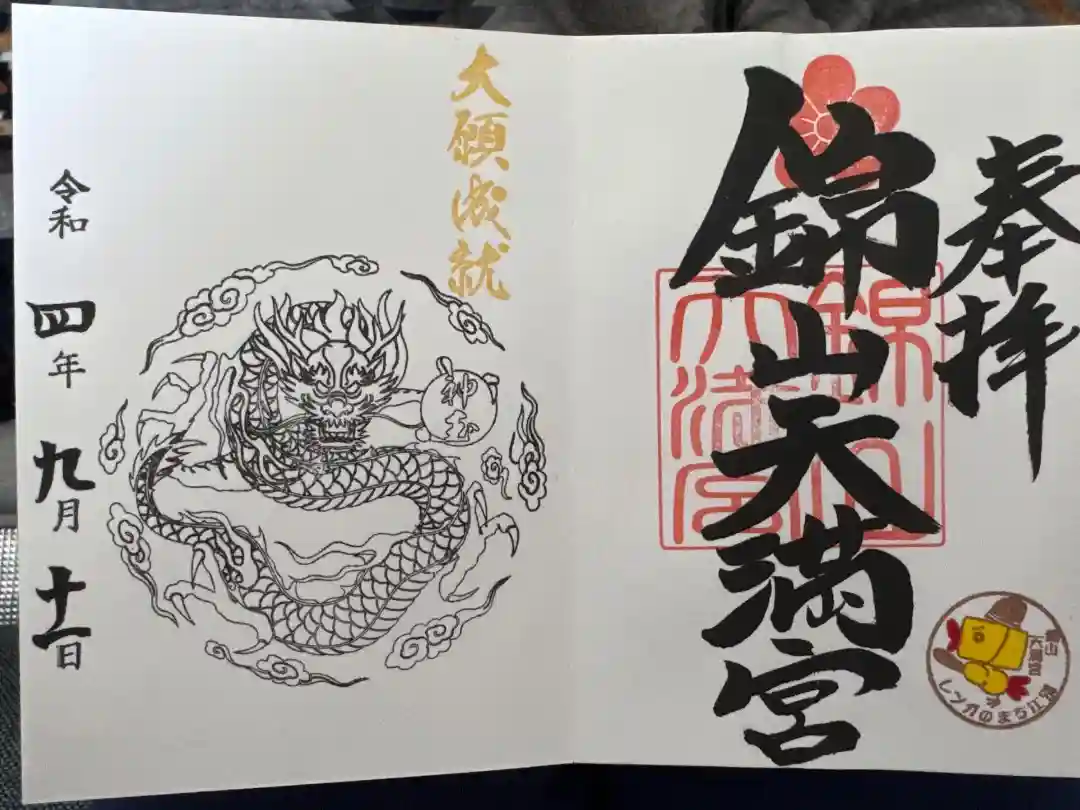 奉拝
錦山天満宮
錦山
天満宮
錦山
天満宮
レンガのまち江別
大願成就
神玉
令和四年九月十一日